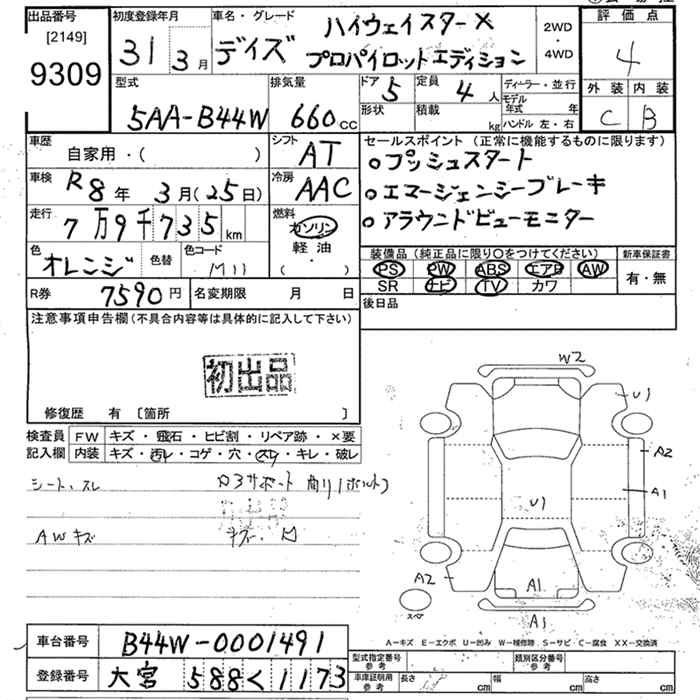 出品番号
[2149]
9309
初度登録年月
31年3月
車名・グレード
デイズ ハイウェイスターX
プロパイロットエディション
2WD
・
4WD
評価点
4
外装 内装
C B
型式
5AA-B44W
排気量
660cc
ドア 5
定員 4人
形状
積載 kg
ディーラー・並行
モデル年式 年
ハンドル 左・右
車歴
自家用・( )
シフト
AT
セールスポイント(正常に機能するものに限ります)
○プッシュスタート
○エマージェンシーブレーキ
○アラウンドビューモニター
車検
R8年3月(25日)
冷房
AAC
走行
7万9千735km
燃料
ガソリン
・
軽油
( ・ )
色
オレンジ
色替
色コード
M11
装備品(純正品に限り○をつけてください)
PS PW ABS エアB AW
SR ナビ TV カワ
新車保証書
有・無
R券
7590円
名変期限 月 日
後日品
注意事項申告欄(不具合内容等は具体的に記入して下さい)
初出品
修復歴 有 [箇所 ]
検査員
記入欄
FW キズ・飛石・ヒビ割・リペア跡・×要
内装 キズ・汚レ・コゲ・穴・スレ・キレ・破レ
シート、スレ
AWキズ
W2
U1
A2
A1
U1
A2
A1
A1
スペア
A-キズ E-エクボ U-凹み W-補修跡 S-サビ C-腐食 XX-交換済
車台番号
B44W-0001491
登録番号
大宮 588く1173
型式指定番号
参考
類別区分番号
参考
車庫証明用
参考
長さ cm
幅 cm
高さ cm